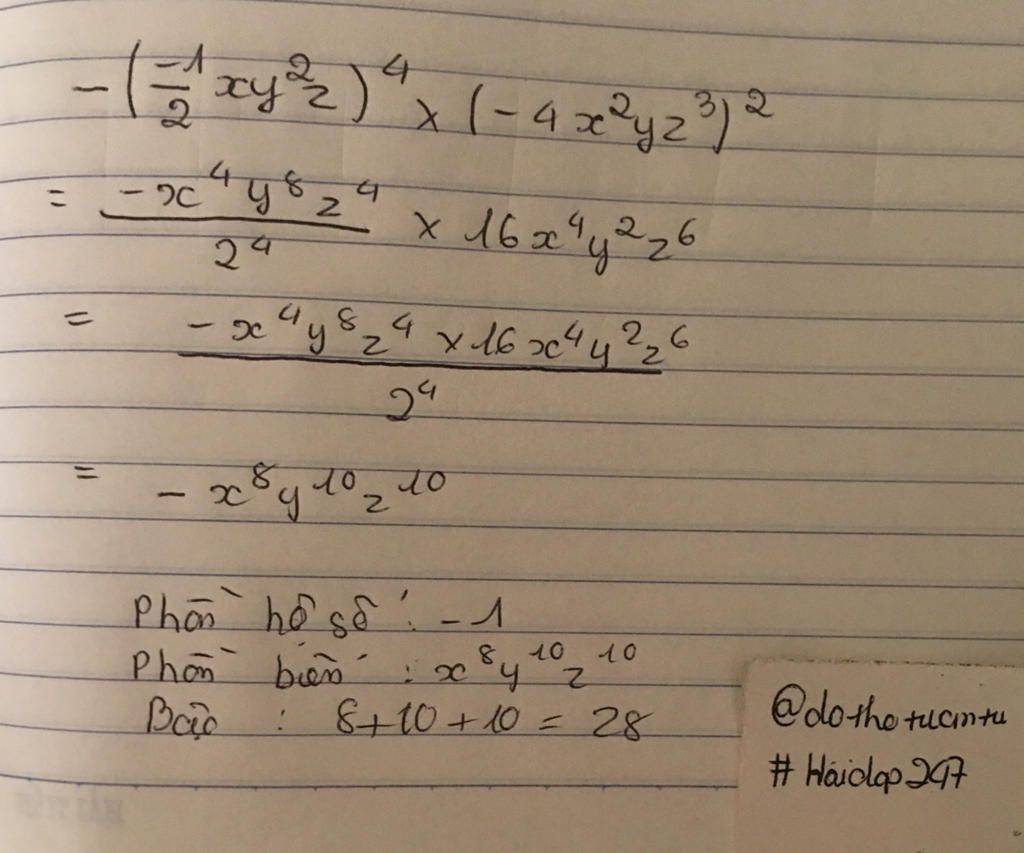 -(-1/2 xy²z)⁴ × (-4x²yz³)²
= -x⁴y⁸z⁴/2⁴ × 16x⁴y²z⁶
= -x⁴y⁸z⁴ × 16x⁴y²z⁶/2⁴
= -x⁸y¹⁰z¹⁰
Phần hệ số : -1
Phần biến : x⁸y¹⁰z¹⁰
Bậc : 8+10+10 = 28
# Hoidap247